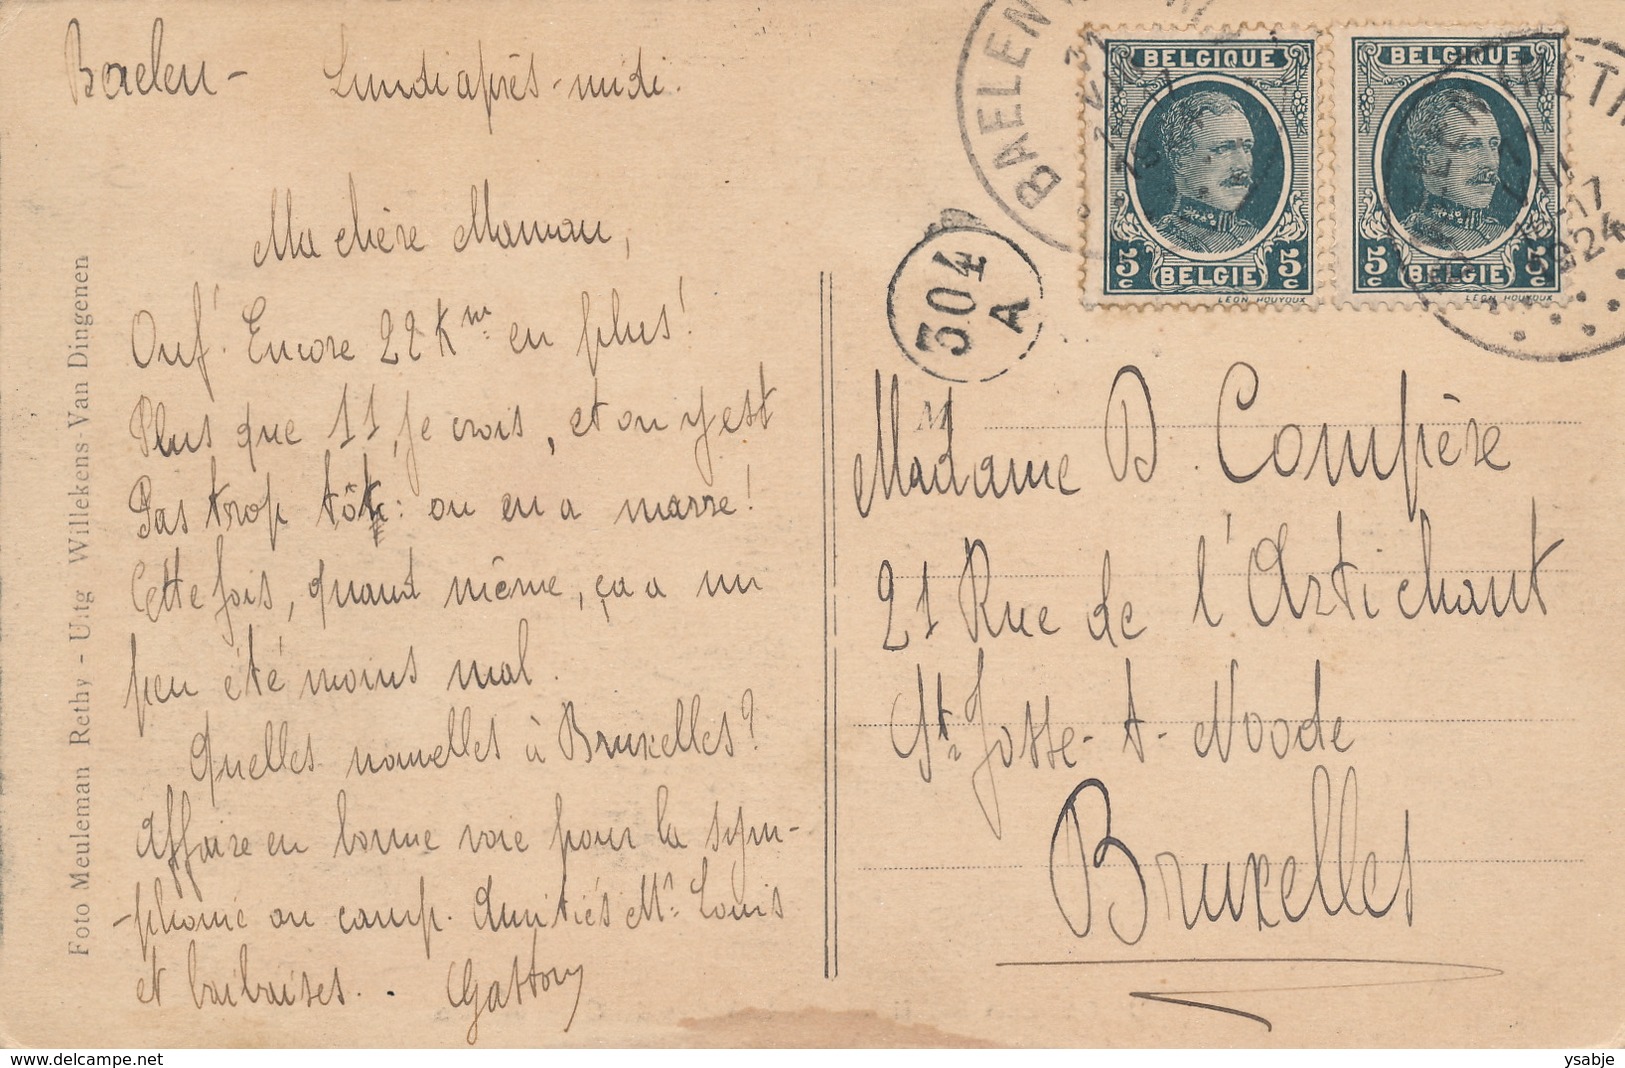 Baelen - Lundi après-midi.
Ma chère Maman,
Ouf! Encore 22 Km en plus!
Plus que 11, je crois, et on y est
Pas trop tôt : on en a marre!
Cette fois, quand même, ça a un
peu été moins mal.
Quelles nouvelles à Bruxelles?
Affaire en bonne voie pour la sym-
-phonie au camp. Amitiés Mr Louis
et baibaises. . Gaston
Foto Meuleman Rethy - Uitg Willekens-Van Dingenen
BAELEN
BELGIQUE
5c BELGIE 5c
LEON HOUYOUX
BELGIQUE
5c BELGIE 5c
LEON HOUYOUX
1924
304
A
M
Madame D. Compère
21 Rue de l'Artichaut
St. Josse-t-Noode
Bruxelles
ysabje